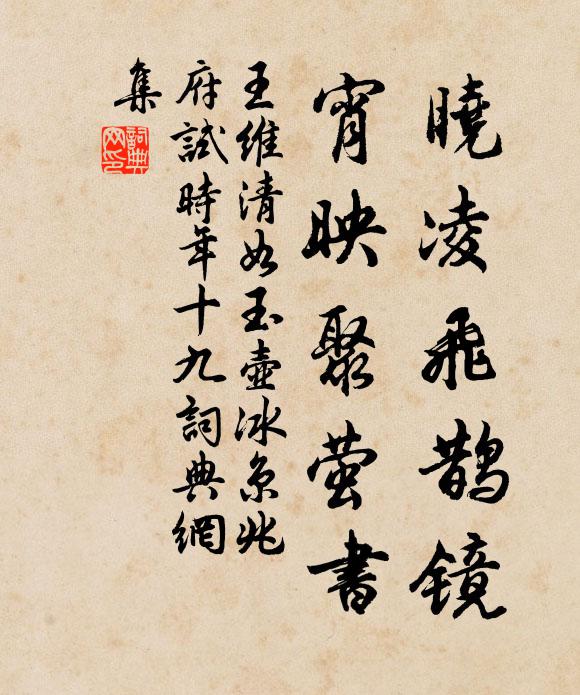 曉凌飛鵲镜
宵映聚萤書
王維清如玉壺冰京兆
府試時年十九詞典網
集
詞典
网印